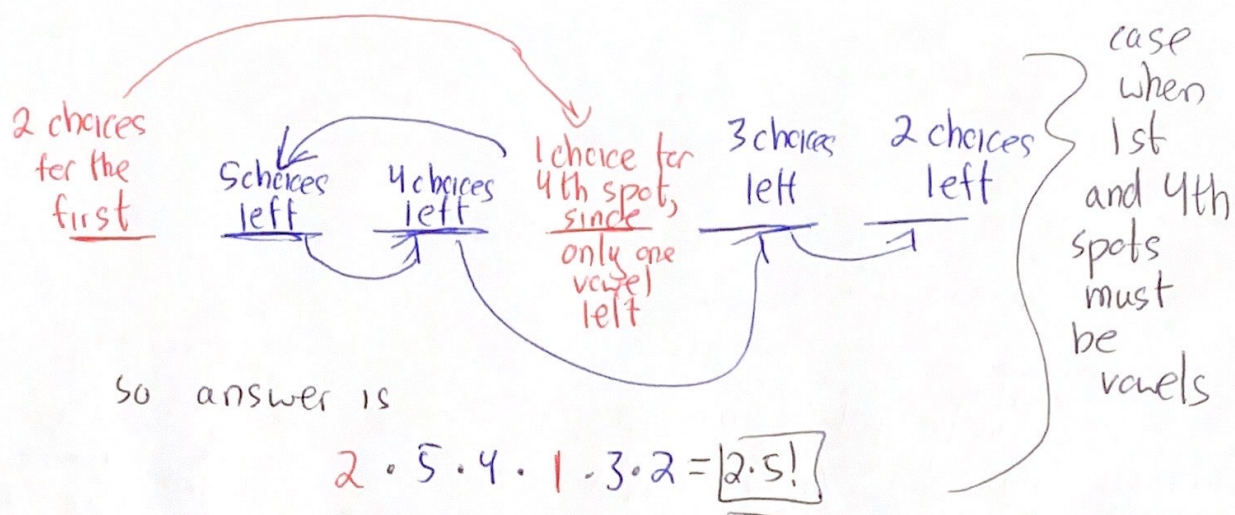 2 choices
for the
first
5 choices
left
4 choices
left
1 choice for
4th spot,
since
only one
vowel
left
3 choices
left
2 choices
left
case
when
1st
and 4th
spots
must
be
vowels
so answer is
2 · 5 · 4 · 1 · 3 · 2 = 2·5!